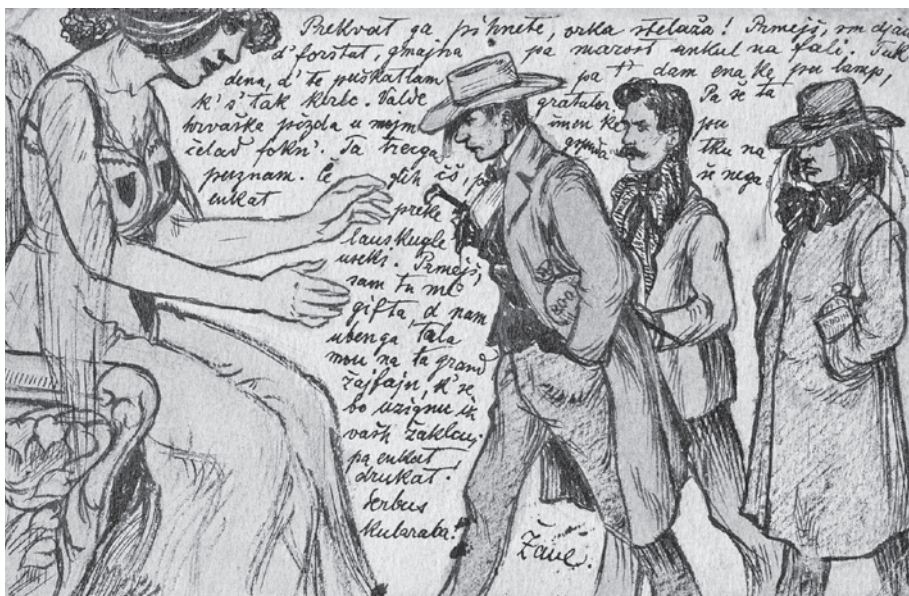 Prekvat ga pihnete, orka stelaža! Prmejš, vm djau
d' forstat, gmajna pa marost ankul na fali. Tuk
dena, d' te puškatlam pa dam ena ke pu lamp,
k' s' tak kerlc. Valde gratuler. Pa še ta
hrvaška pizda u mejm imen ke pu
čelad fokn'. Ta trecga gspuda tku na
puznam. Če glih čš, pa še nega
enkat
preke
lauskugle
useki. Prmejš,
sam tu me
gifta d nam
ubenga tala
mou na ta grand
žajfajn, k' se
bo uzignu iz
vašh žaklau,
pa enkat
drukat.
Serbus
kubaraba!
Žane.